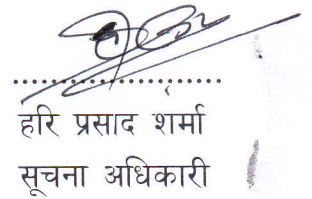 हरि प्रसाद शर्मा
सूचना अधिकारी